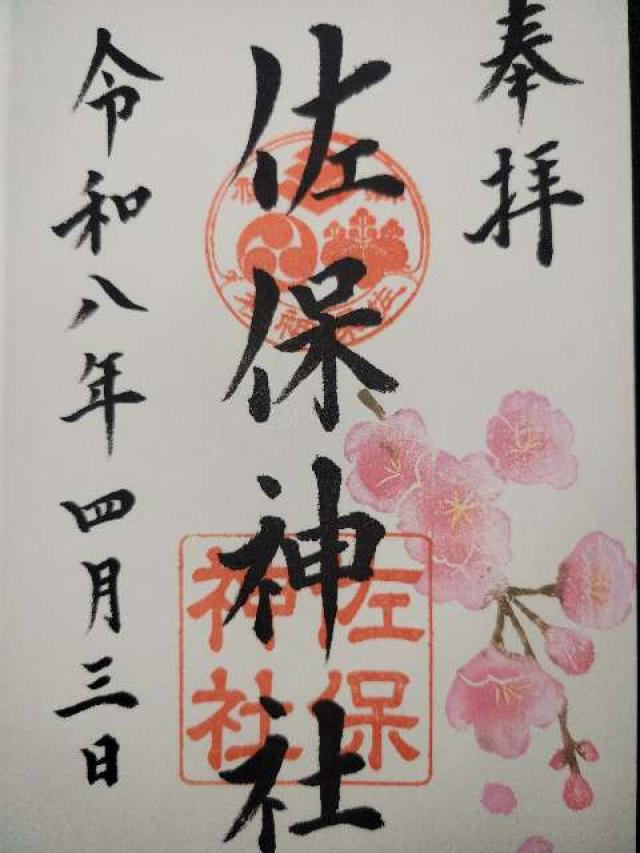 奉拝
佐保神社
令和八年四月三日
佐保
神社